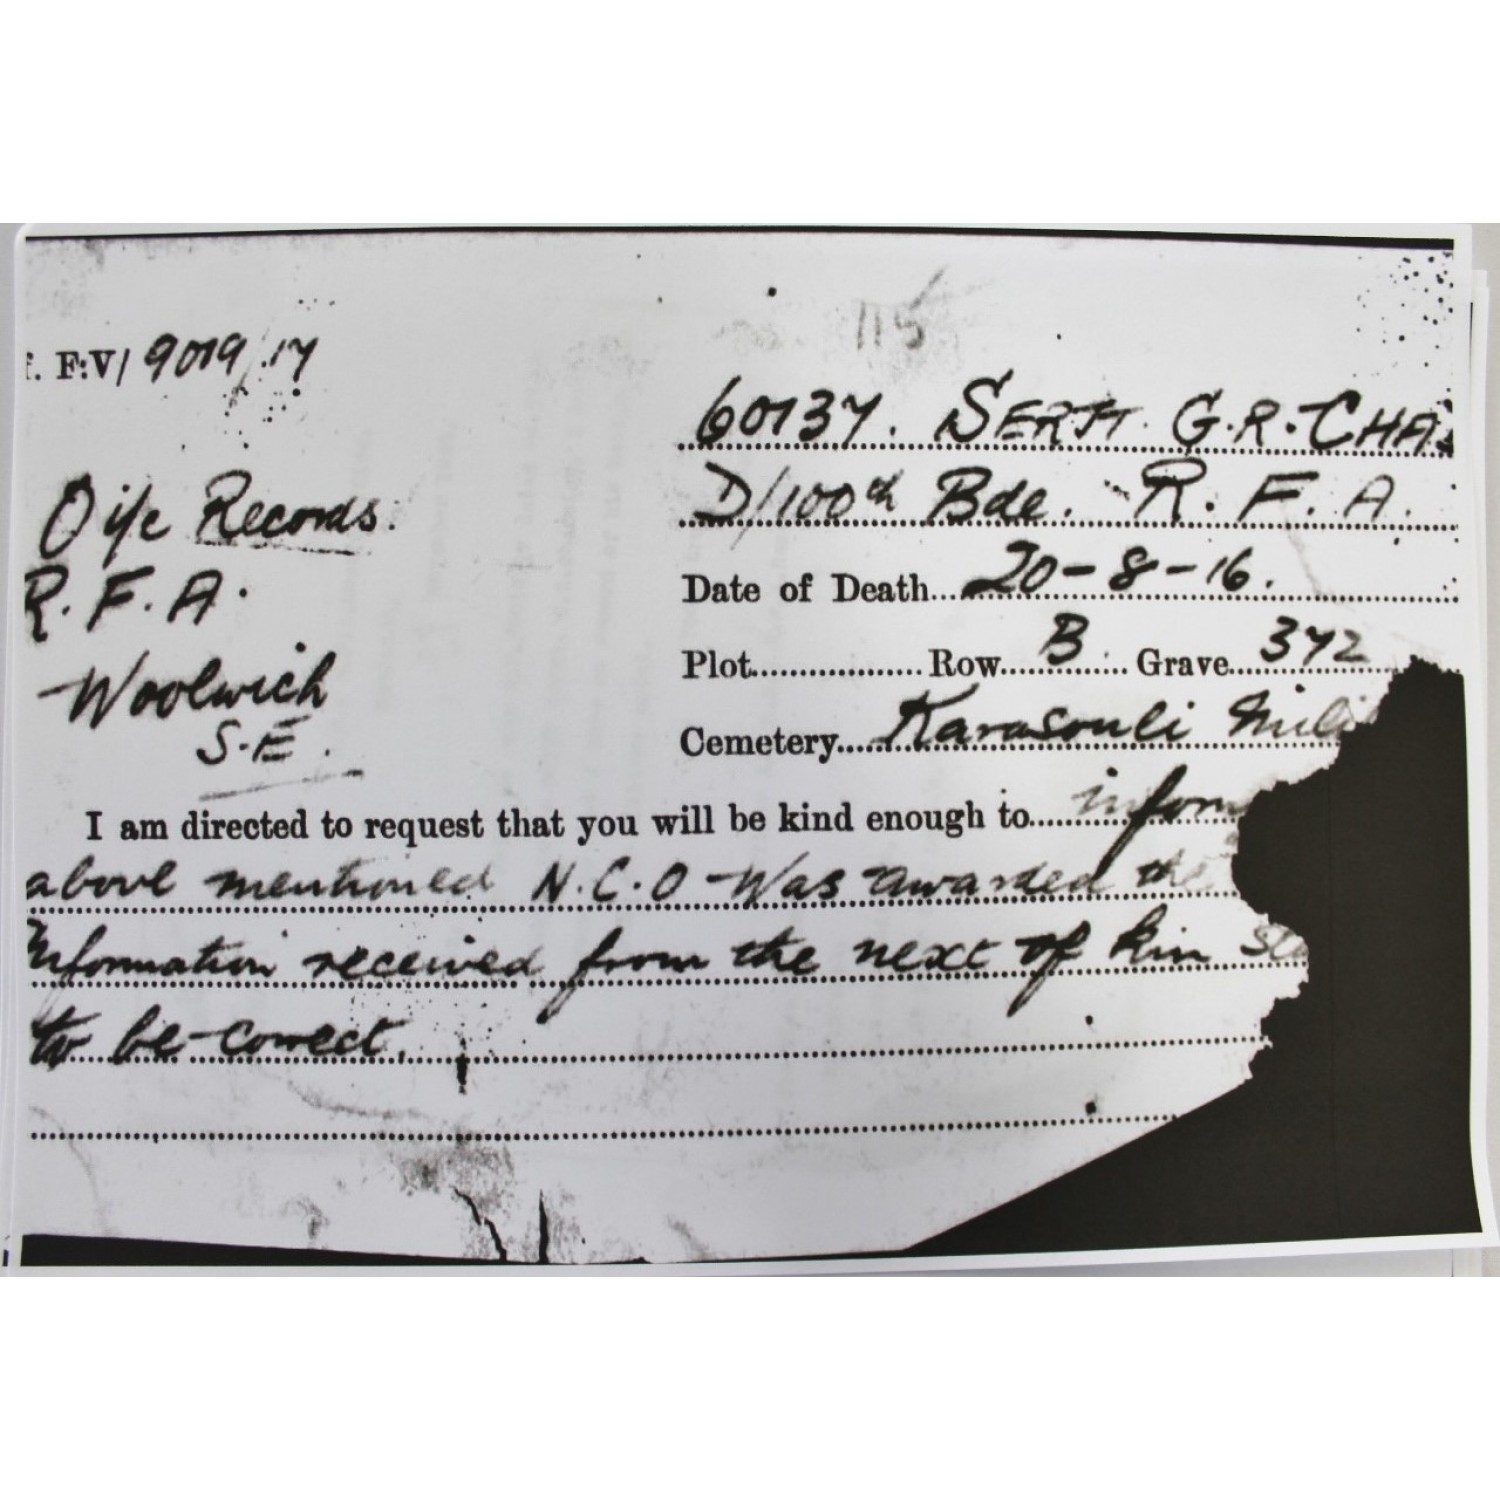 f. F:V/ 9019/17
115
60137. SERJT. G.R. CHA
D/100th Bde. R. F. A.
O i/c Records.
R. F. A.
Woolwich
S.E.
Date of Death 20-8-16.
Plot Row B Grave 372
Cemetery Karasouli Mili
I am directed to request that you will be kind enough to inform
above mentioned N.C.O Was awarded the
Information received from the next of kin
to be correct.